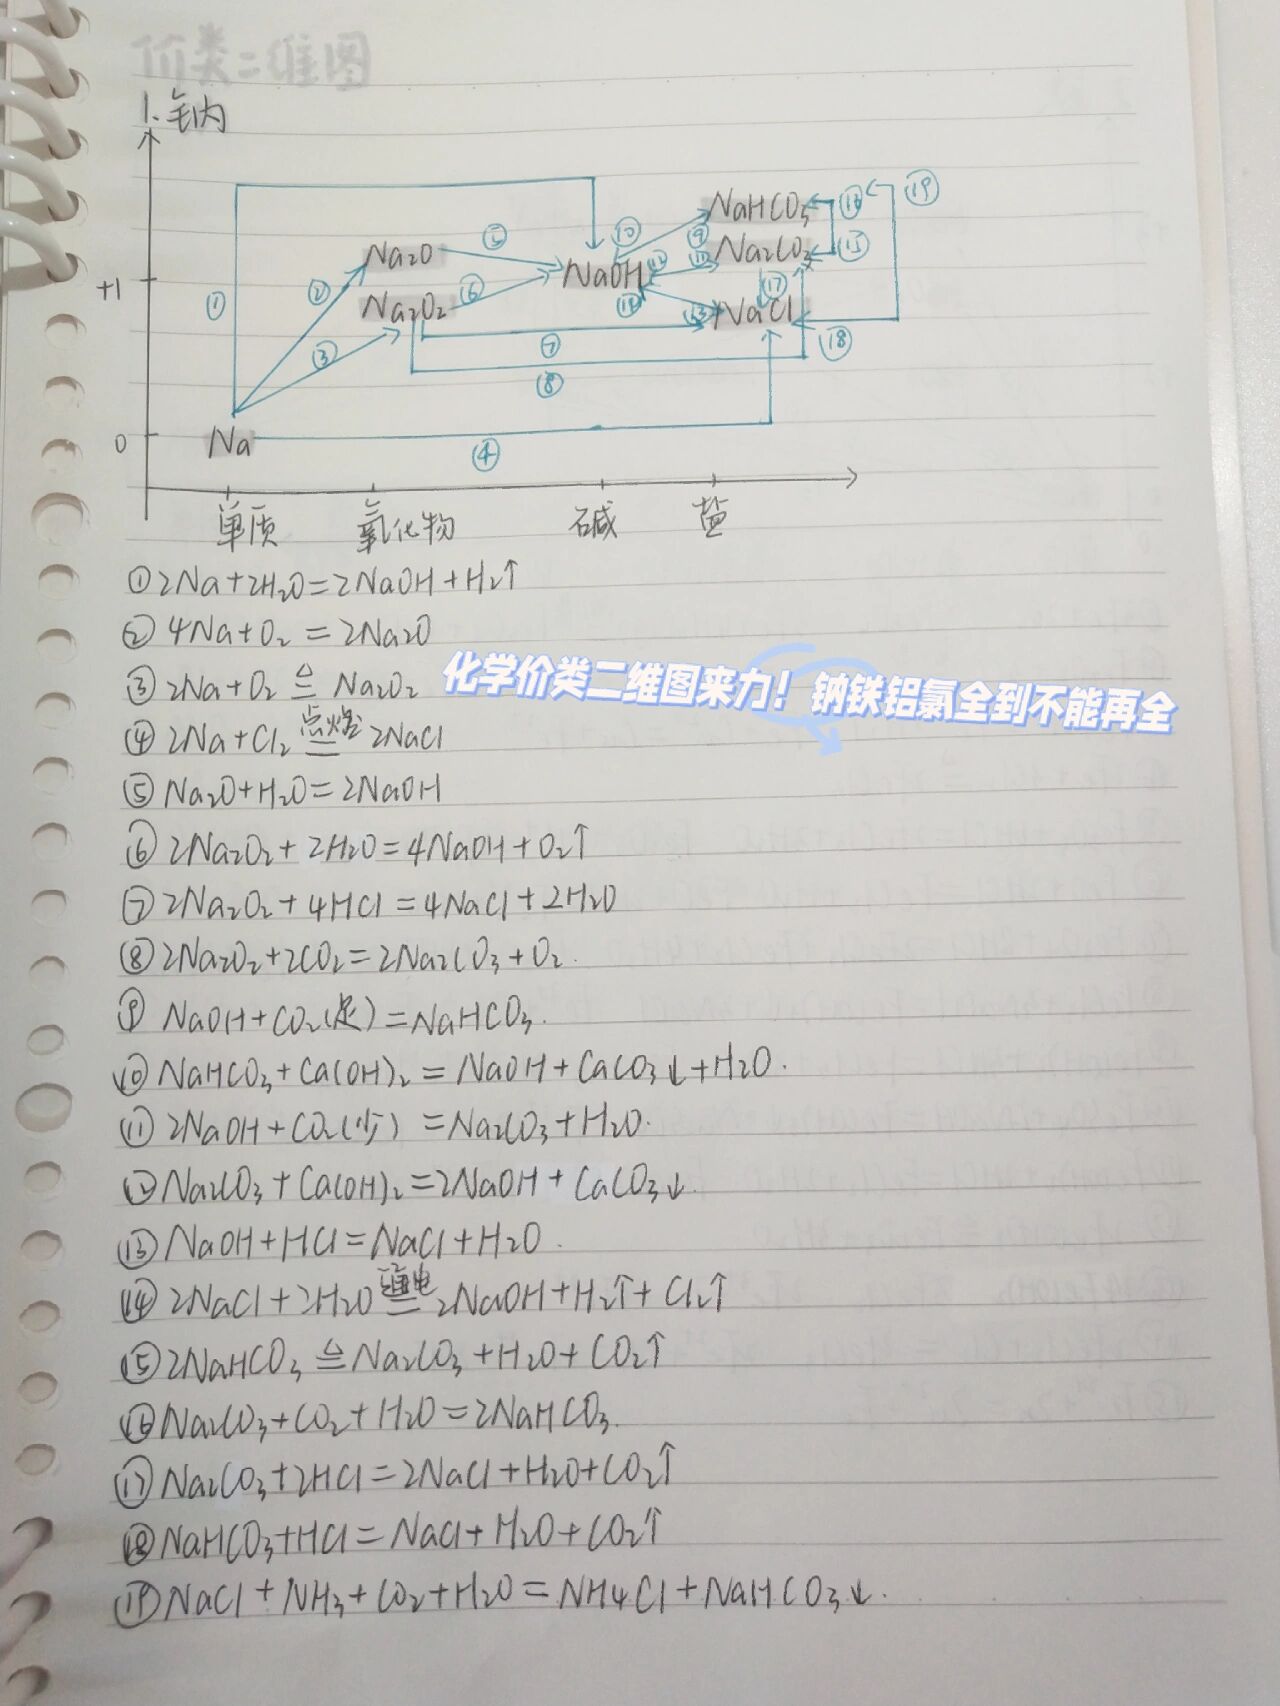 价类二维图
1.钠
⑲
NaHCO₃ ⑯
⑩
⑨
Na₂O ⑤ Na₂CO₃ ⑮
NaOH ⑫ ⑪
+1 ① ② ⑥ ⑰
Na₂O₂ ⑭ ⑬ NaCl
③ ⑦ ⑱
⑧
0 Na
④
单质 氧化物 碱 盐
①2Na+2H₂O=2NaOH+H₂↑
②4Na+O₂=2Na₂O
③2Na+O₂≜Na₂O₂
化学价类二维图来力！钠铁铝氯全到不能再全
④2Na+Cl₂ 点燃 = 2NaCl
⑤Na₂O+H₂O=2NaOH
⑥2Na₂O₂+2H₂O=4NaOH+O₂↑
⑦2Na₂O₂+4HCl=4NaCl+2H₂O
⑧2Na₂O₂+2CO₂=2Na₂CO₃+O₂.
⑨NaOH+CO₂(足)=NaHCO₃.
⑩NaHCO₃+Ca(OH)₂=NaOH+CaCO₃↓+H₂O.
⑪2NaOH+CO₂(少)=Na₂CO₃+H₂O.
⑫Na₂CO₃+Ca(OH)₂=2NaOH+CaCO₃↓.
⑬NaOH+HCl=NaCl+H₂O.
⑭2NaCl+2H₂O 通电 = 2NaOH+H₂↑+Cl₂↑
⑮2NaHCO₃≜Na₂CO₃+H₂O+CO₂↑
⑯Na₂CO₃+CO₂+H₂O=2NaHCO₃.
⑰Na₂CO₃+2HCl=2NaCl+H₂O+CO₂↑
⑱NaHCO₃+HCl=NaCl+H₂O+CO₂↑
⑲NaCl+NH₃+CO₂+H₂O=NH₄Cl+NaHCO₃↓.